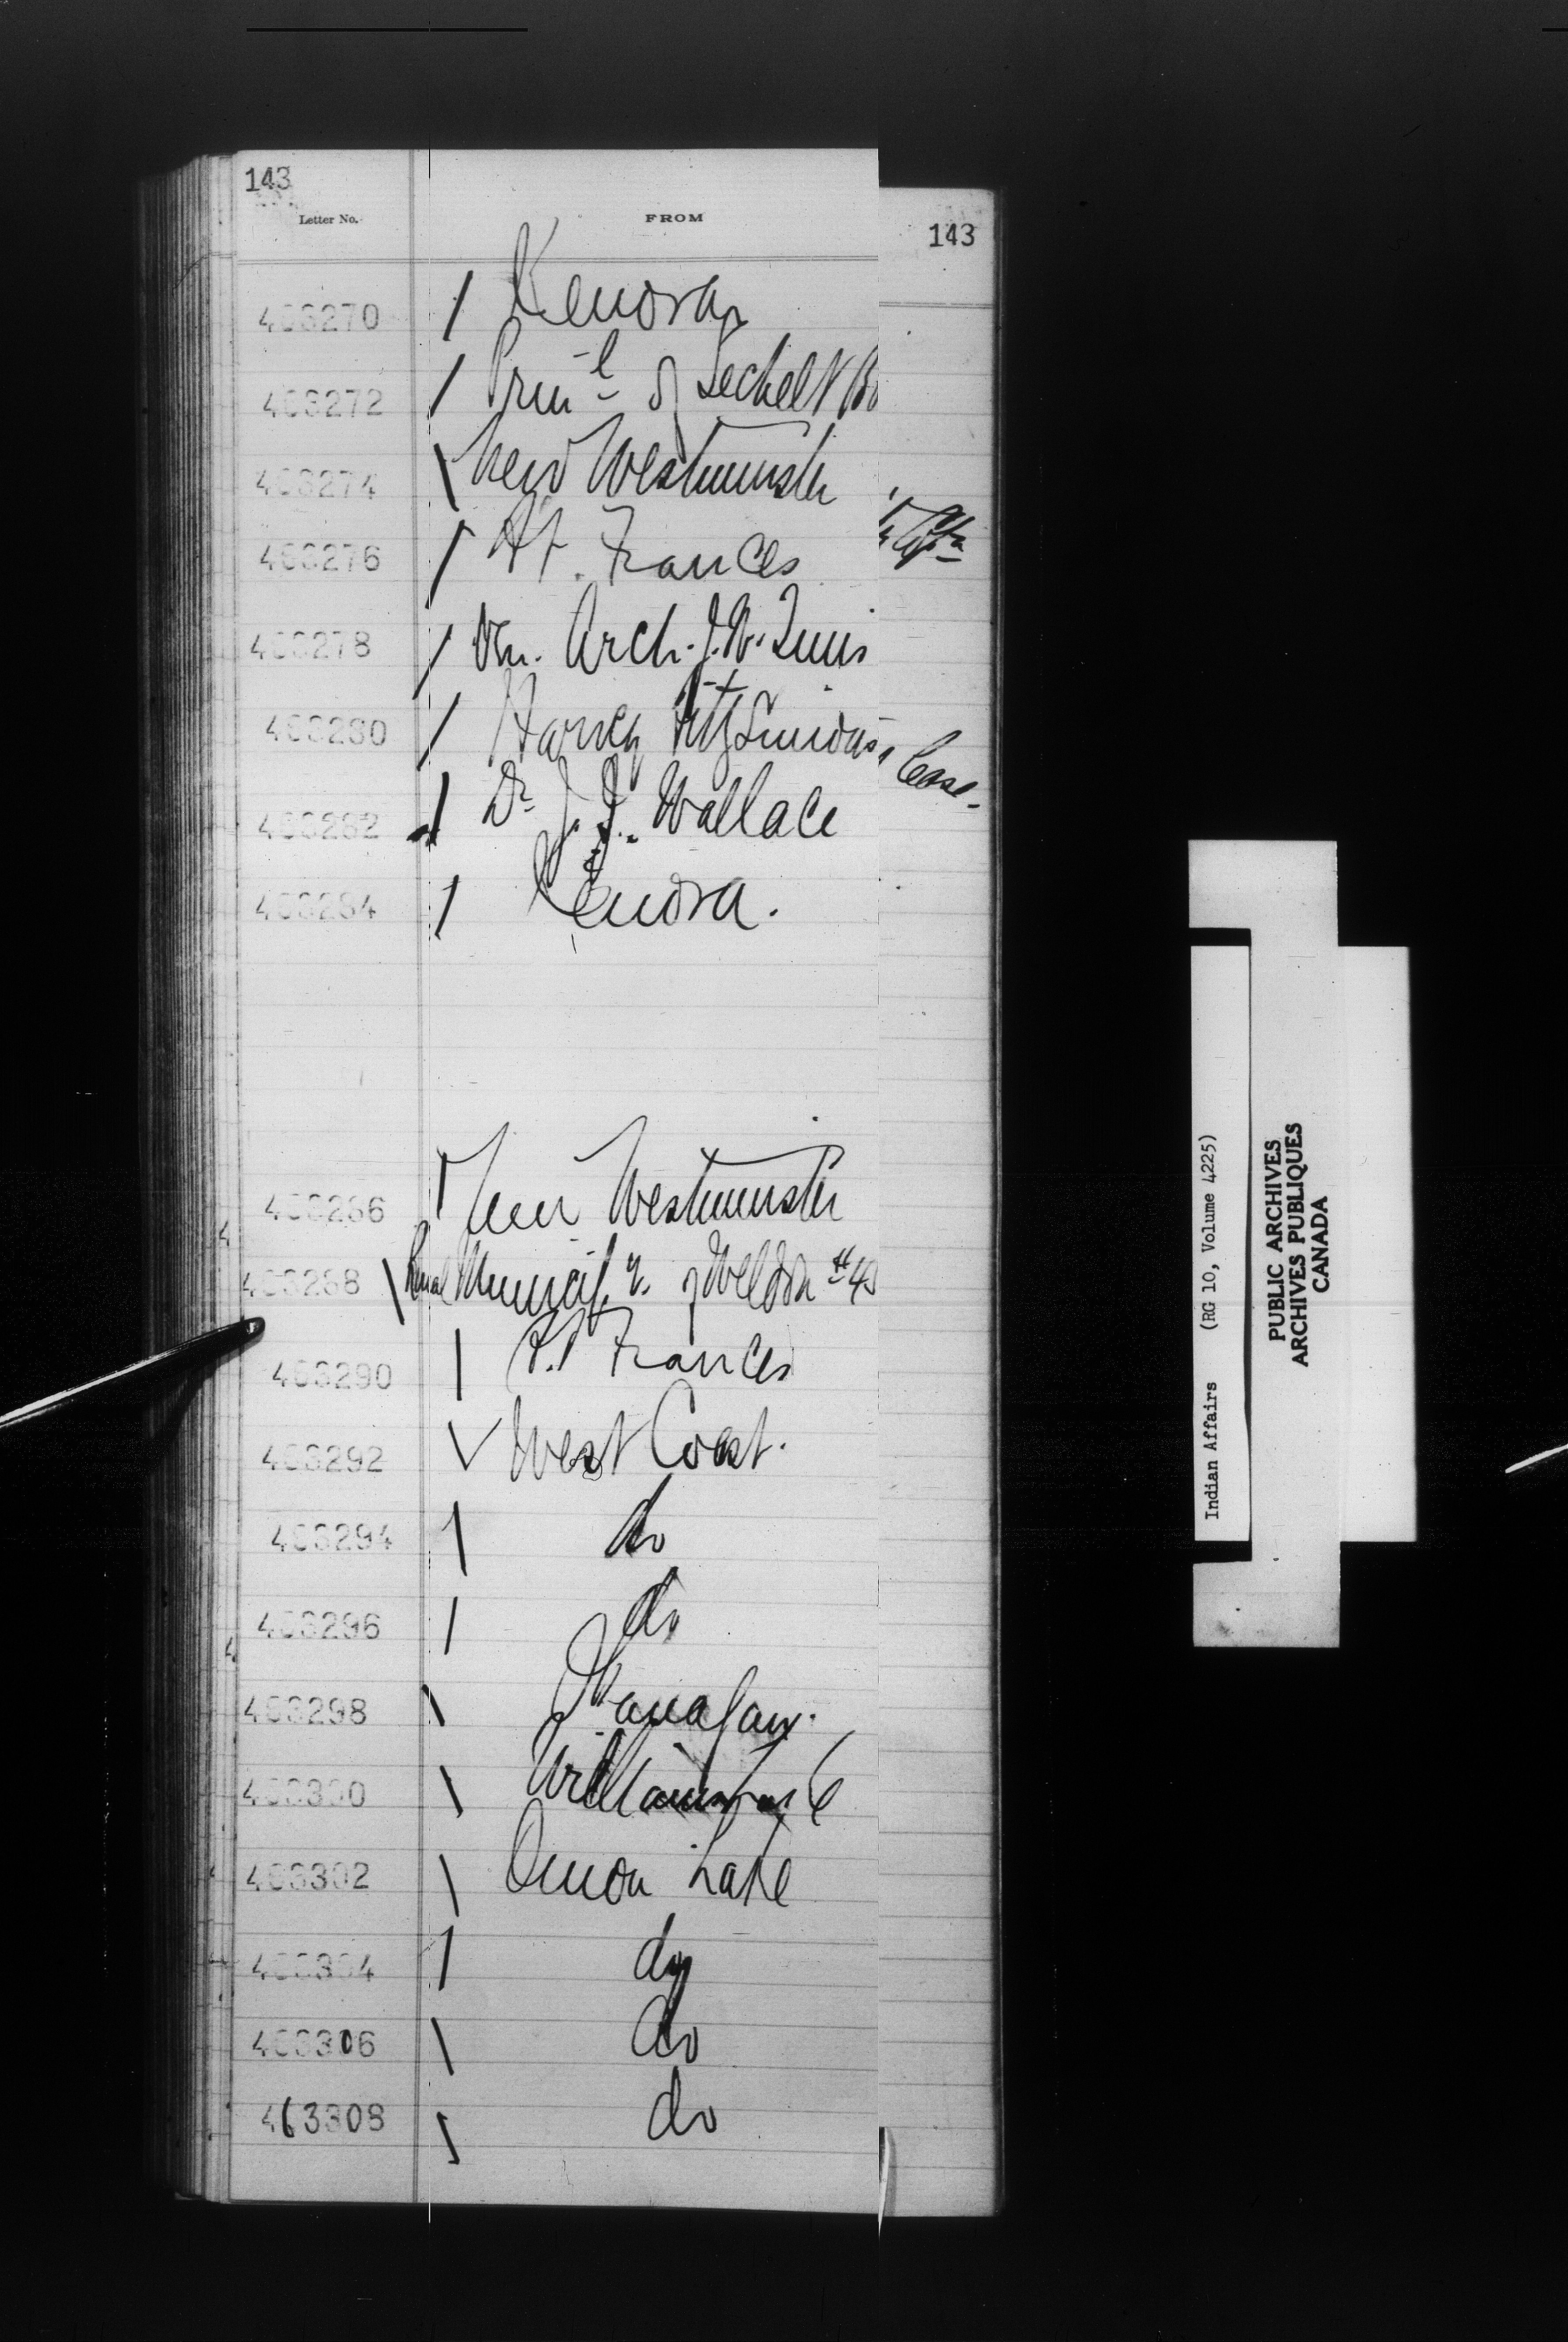 143
Letter No. FROM
143
403270 Kenora
403272 Prin-l of Sechelt Bo
403274 New Westminster
403276 Ft. Frances
403278 Ven. Arch. J.W. Tims
403280 Harvey FitzSimons
Case.
403282 Dr J. J. Wallace
403284 Kenora.
403286 New Westminster
403288 Rural Municip.y. of Weldon #4
403290 Ft Frances
403292 West Coast.
403294 do
403296 do
403298 Okanagan.
403300 Williams
403302 Onion Lake
403304 do
403306 do
463308 do
Indian Affairs (RG 10, Volume 4225)
PUBLIC ARCHIVES
ARCHIVES PUBLIQUES
CANADA